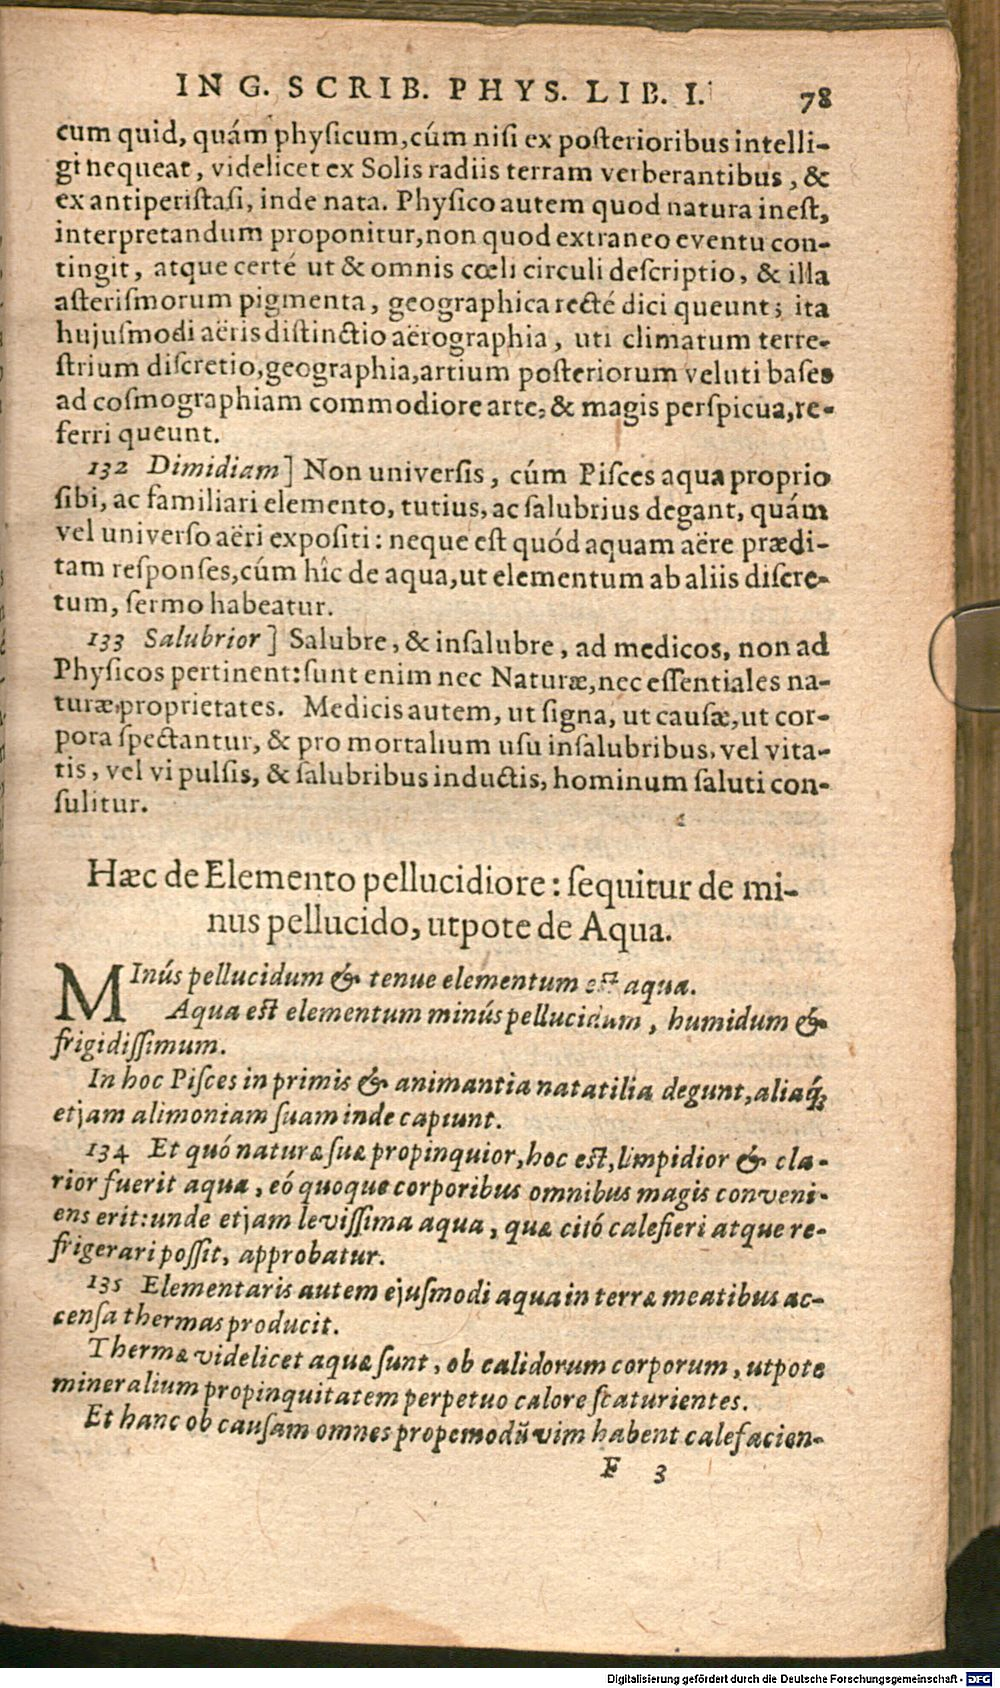 IN G. SCRIB. PHYS. LIB. I. 78
cum quid, quám physicum, cúm nisi ex posterioribus intelli-
gi nequeat, videlicet ex Solis radiis terram verberantibus, &
ex antiperistasi, inde nata. Physico autem quod natura inest,
interpretandum proponitur, non quod extraneo eventu con-
tingit, atque certé ut & omnis cœli circuli descriptio, & illa
asterismorum pigmenta, geographica recté dici queunt; ita
hujusmodi aëris distinctio aërographia, uti climatum terre-
strium discretio, geographia, artium posteriorum veluti bases
ad cosmographiam commodiore arte, & magis perspicua, re-
ferri queunt.
132 Dimidiam] Non universis, cúm Pisces aqua proprio
sibi, ac familiari elemento, tutius, ac salubrius degant, quám
vel universo aëri expositi: neque est quód aquam aëre prædi-
tam responses, cúm hîc de aqua, ut elementum ab aliis discre-
tum, sermo habeatur.
133 Salubrior] Salubre, & insalubre, ad medicos, non ad
Physicos pertinent: sunt enim nec Naturæ, nec essentiales na-
turæ, proprietates. Medicis autem, ut signa, ut causæ, ut cor-
pora spectantur, & pro mortalium usu insalubribus, vel vita-
tis, vel vi pulsis, & salubribus inductis, hominum saluti con-
sulitur.
Hæc de Elemento pellucidiore: sequitur de mi-
nus pellucido, utpote de Aqua.
MInús pellucidum & tenue elementum est aqua.
Aqua est elementum minús pellucidum, humidum &
frigidissimum.
In hoc Pisces in primis & animantia natatilia degunt, aliaq́;
etjam alimoniam suam inde capiunt.
134 Et quó naturæ suæ propinquior, hoc est, limpidior & cla-
rior fuerit aqua, eó quoque corporibus omnibus magis conveni-
ens erit: unde etjam levissima aqua, quæ citó calefieri atque re-
frigerari possit, approbatur.
135 Elementaris autem ejusmodi aqua in terræ meatibus ac-
censa thermas producit.
Thermæ videlicet aquæ sunt, ob calidorum corporum, utpote
mineralium propinquitatem perpetuo calore scaturientes.
Et hanc ob causam omnes propemodũ vim habent calefacien-
F 3
Digitalisierung gefördert durch die Deutsche Forschungsgemeinschaft - DFG